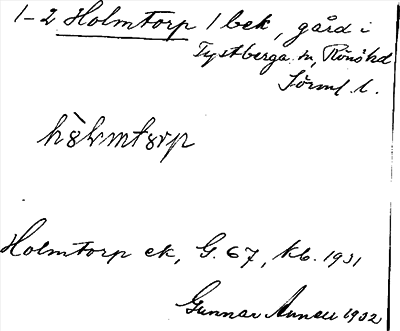 1-2 Holmtorp 1 bek, gård i
Tystberga sn, Rönö hd
Sörml. l.
hòlmtorp
Holmtorp ek, G. 67, kb. 1931
Gunnar 1932